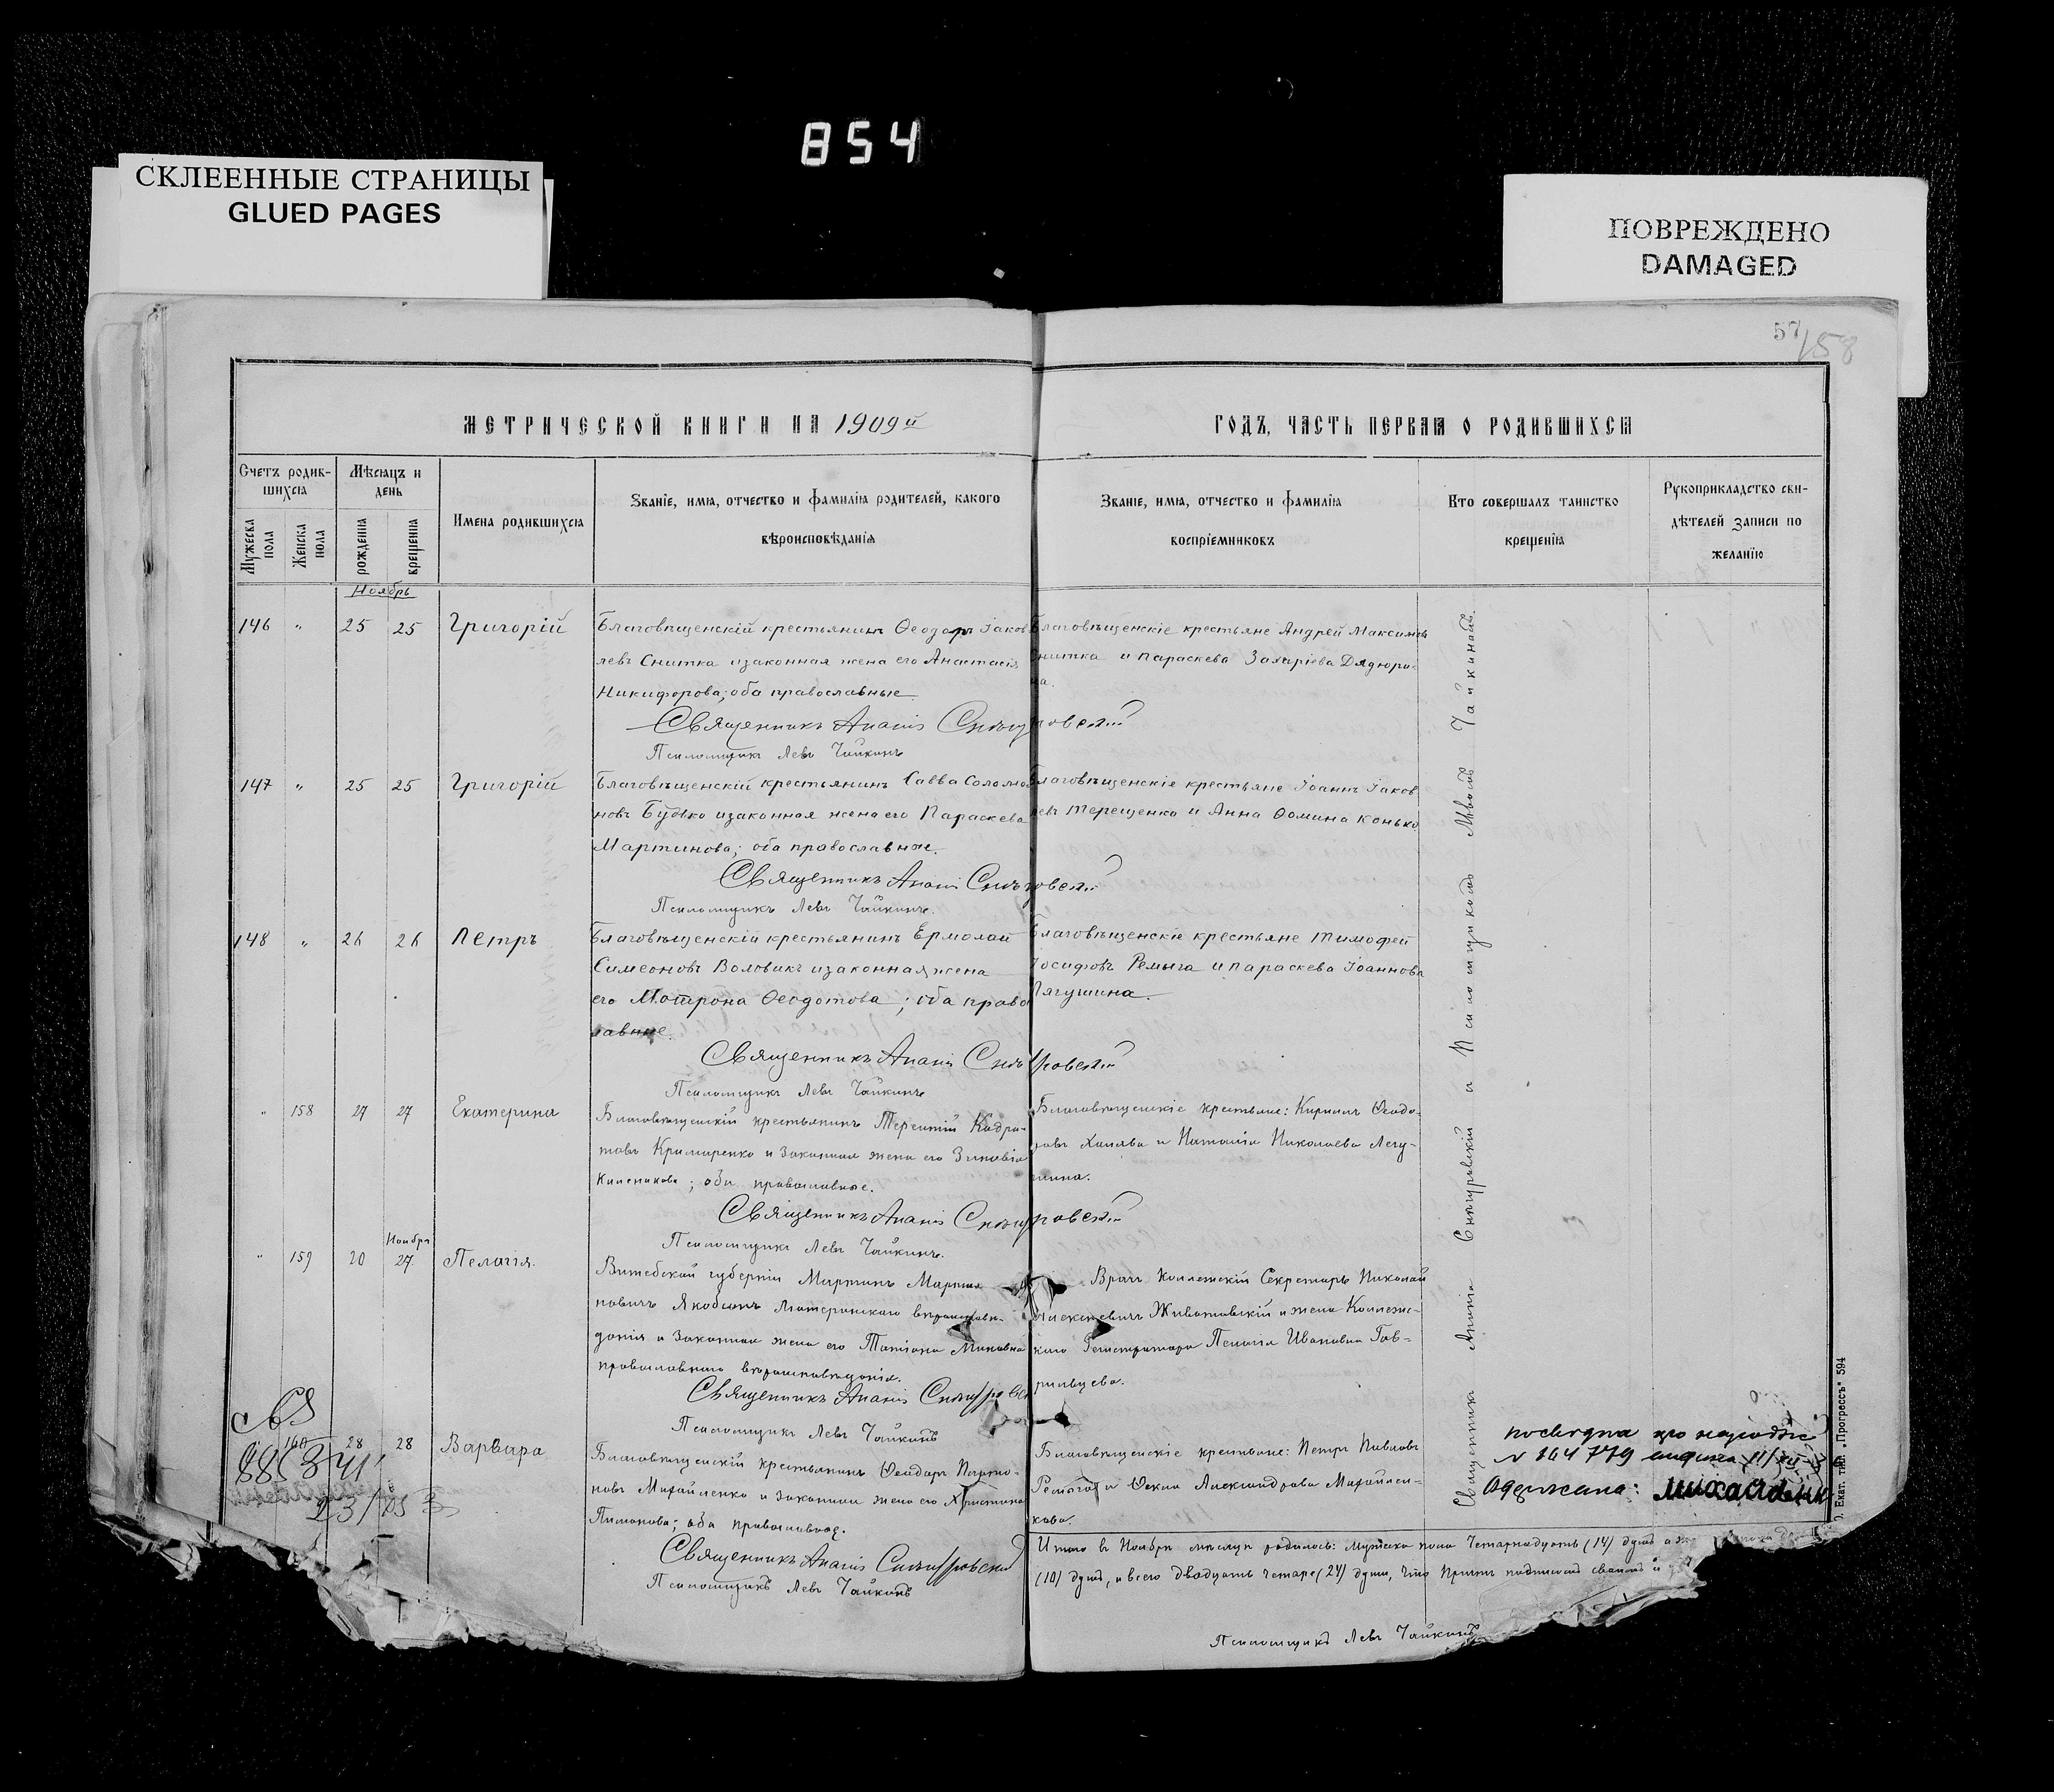 854
СКЛЕЕННЫЕ СТРАНИЦЫ
GLUED PAGES
ПОВРЕЖДЕНО
DAMAGED
57/158
МЕТРИЧЕСКОЙ КНИГИ НА 1909й
ГОДЪ, ЧАСТЬ ПЕРВАЯ О РОДИВШИХСЯ
Счетъ родив-
шихся
Мужеска пола
Женска пола
Мѣсяцъ и
день
рожденія
крещенія
Имена родившихся
Званіе, имя, отчество и фамилія родителей, какого
вѣроисповѣданія
Званіе, имя, отчество и фамилія
воспріемниковъ
Кто совершалъ таинство
крещенія
Рукоприкладство сви-
дѣтелей записи по
желанію
Ноябрь
146 " 25 25 Григорій
Благовѣщенскій крестьянинъ Ѳеодоръ Іаков
левъ Снитка и законная жена его Анастасія
Никифорова; оба православные
Благовѣщенскіе крестьяне Андрей Максимовъ
Снитка и Параскева Захаріева Дядюри-
на.
Священникъ Ананій Снѣгуровскій
Псаломщикъ Левъ Чайкинъ
147 " 25 25 Григорій
Благовѣщенскій крестьянинъ Савва Соломо
новъ Будко и законная жена его Параскева
Мартинова; оба православные.
Благовѣщенскіе крестьяне Іоаннъ Іаков
левъ Терещенко и Анна Ѳомина Конько
Священникъ Ананій Снѣгуровскій
Псаломщикъ Левъ Чайкинъ.
148 " 26 26 Петръ
Благовѣщенскій крестьянинъ Ермолай
Симеоновъ Воловикъ и законная жена
его Мотрона Ѳеодотова; оба право
славные.
Благовѣщенскіе крестьяне Тимофей
Іосифовъ Ремыга и Параскева Іоаннова
Лягушина.
Священникъ Ананій Снѣгуровскій
Псаломщикъ Левъ Чайкинъ
" 158 27 27 Екатерина
Благовѣщенскій крестьянинъ Терентій Кодра-
товъ Крамаренко и законная жена его Зиновія
; оба православные.
Благовѣщенскіе крестьяне: Кириллъ Ѳеодо-
ровъ Халява и Наталія Николаева Лягу-
шина.
Священникъ Ананій Снѣгуровскій
Псаломщикъ Левъ Чайкинъ.
" 159 20 Ноября 27. Пелагія.
Витебской губерніи Мартинъ Марти-
новичъ Якобсонъ Лютеранскаго вѣроисповѣ-
данія и законная жена его Татіана
православнаго вѣроисповѣданія.
Врачъ Коллежскій Секретарь Николай
Алексѣевичъ Животовскій и жена Коллежс-
каго Регистратора Пелагія Ивановна Гав-
рильцева.
Священникъ Ананій Снѣгуровскій
Псаломщикъ Левъ Чайкинъ
" 160 28 28 Варвара
Благовѣщенскій крестьянинъ Ѳеодоръ
новъ Михайленко и законная жена его Христина
; оба православные.
Благовѣщенскіе крестьяне: Петръ Павловъ
Ремыга и Ѳекла Александрова Михайлен-
кова.
Священникъ Ананій Снѣгуровскій
Псаломщикъ Левъ Чайкинъ
Священникъ Ананій Снѣгуровскій и Псаломщикомъ Львомъ Чайкинымъ.
23/
№ 164779
Одержала:
Итого въ Ноябрѣ мѣсяцѣ родилось: Мужеска пола Четырнадцать (14) душъ
(10) душъ, и всего двадцать четыре (24) души, что Причтъ подписомъ своимъ и
Псаломщикъ Левъ Чайкинъ
Екат. тип. „Прогрессъ" 594